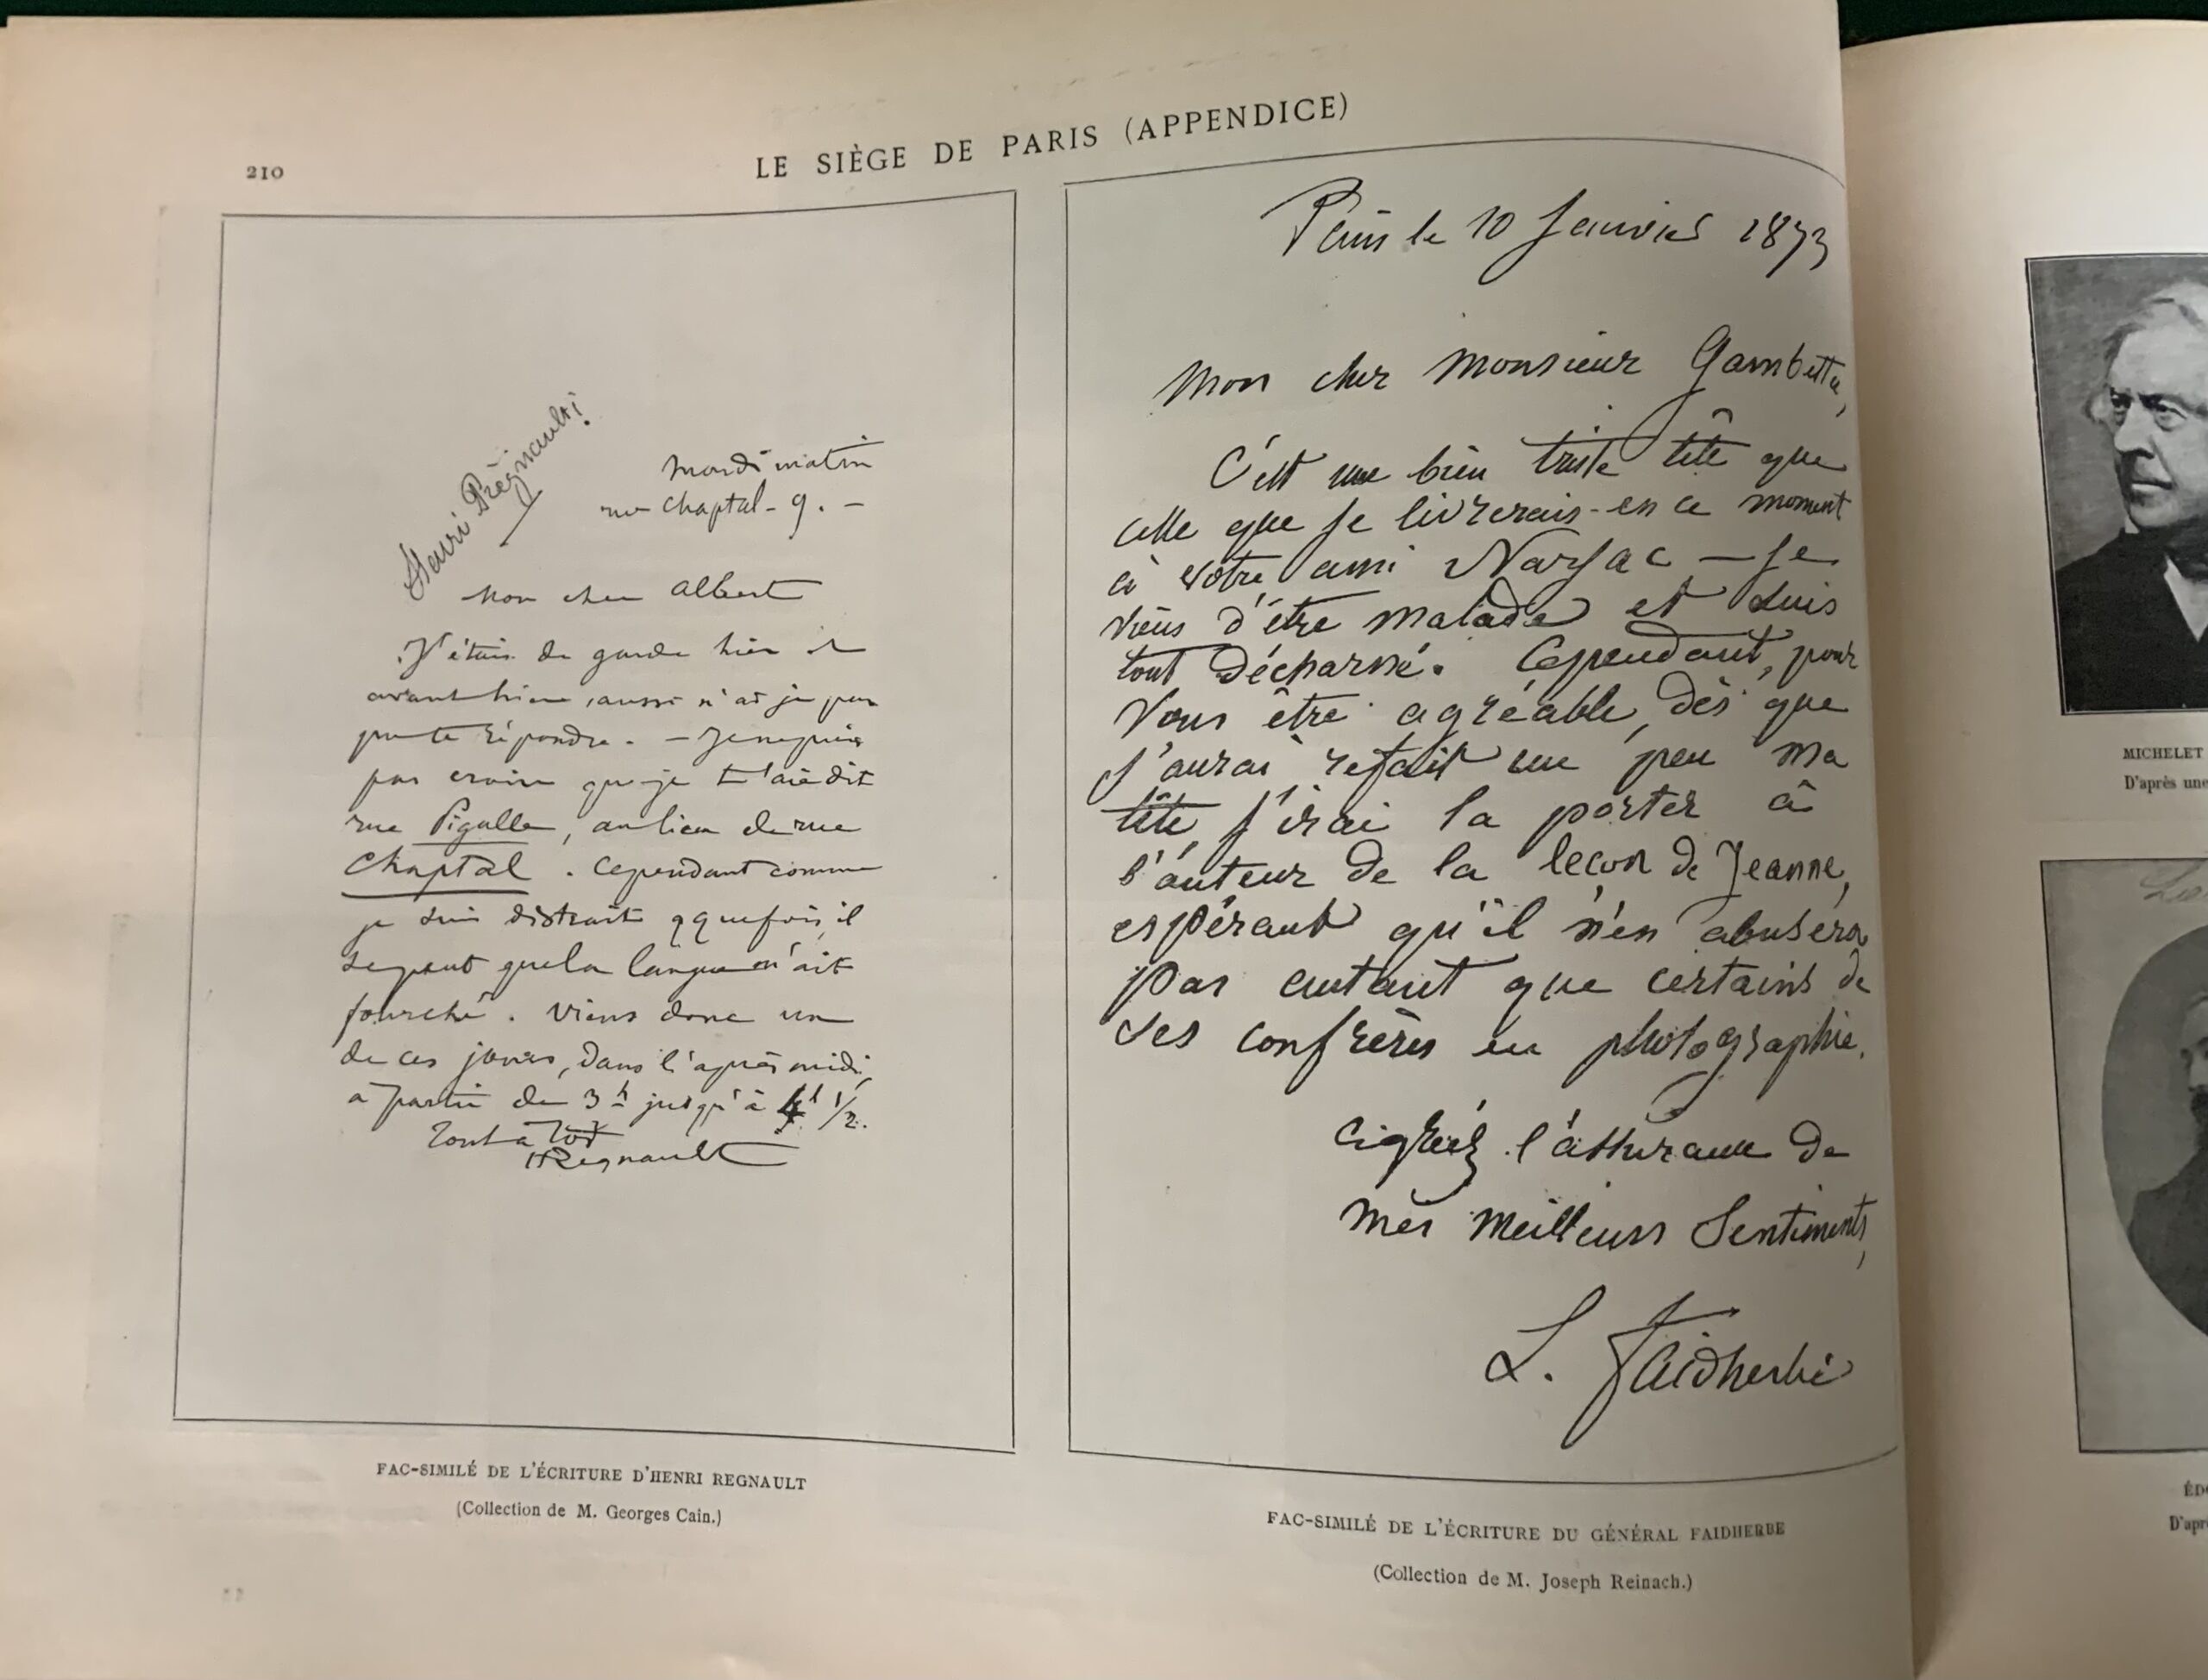 210
LE SIÈGE DE PARIS (APPENDICE)
Henri Regnault
Mardi matin
rue Chaptal - 9. -
Mon cher Albert
J'étais de garde hier et
avant hier, aussi n'ai je pas
pu te répondre. - Je ne puis
pas croire que je t'aie dit
rue Pigalle, au lieu de rue
Chaptal. Cependant comme
je suis distrait qquefois, il
se peut que la langue m'ait
fourché. Viens donc un
de ces jours, dans l'après midi,
à partir de 3h jusqu'à 4h 1/2.
Tout à toi
HRegnault
FAC-SIMILÉ DE L'ÉCRITURE D'HENRI REGNAULT
(Collection de M. Georges Cain.)
Paris le 10 Janvier 1873
Mon cher Monsieur Gambetta,
C'est une bien triste tête que
celle que je livrerais en ce moment
à votre ami Narjac — Je
viens d'être malade et suis
tout décharné. Cependant, pour
vous être agréable, dès que
j'aurai refait un peu ma
tête, j'irai la porter à
l'auteur de la leçon de Jeanne,
espérant qu'il n'en abusera
pas autant que certains de
ses confrères en photographie.
Agréez l'assurance de
mes meilleurs Sentiments,
L. Faidherbe
FAC-SIMILÉ DE L'ÉCRITURE DU GÉNÉRAL FAIDHERBE
(Collection de M. Joseph Reinach.)
MICHELET
D'après une
ÉD
D'apr